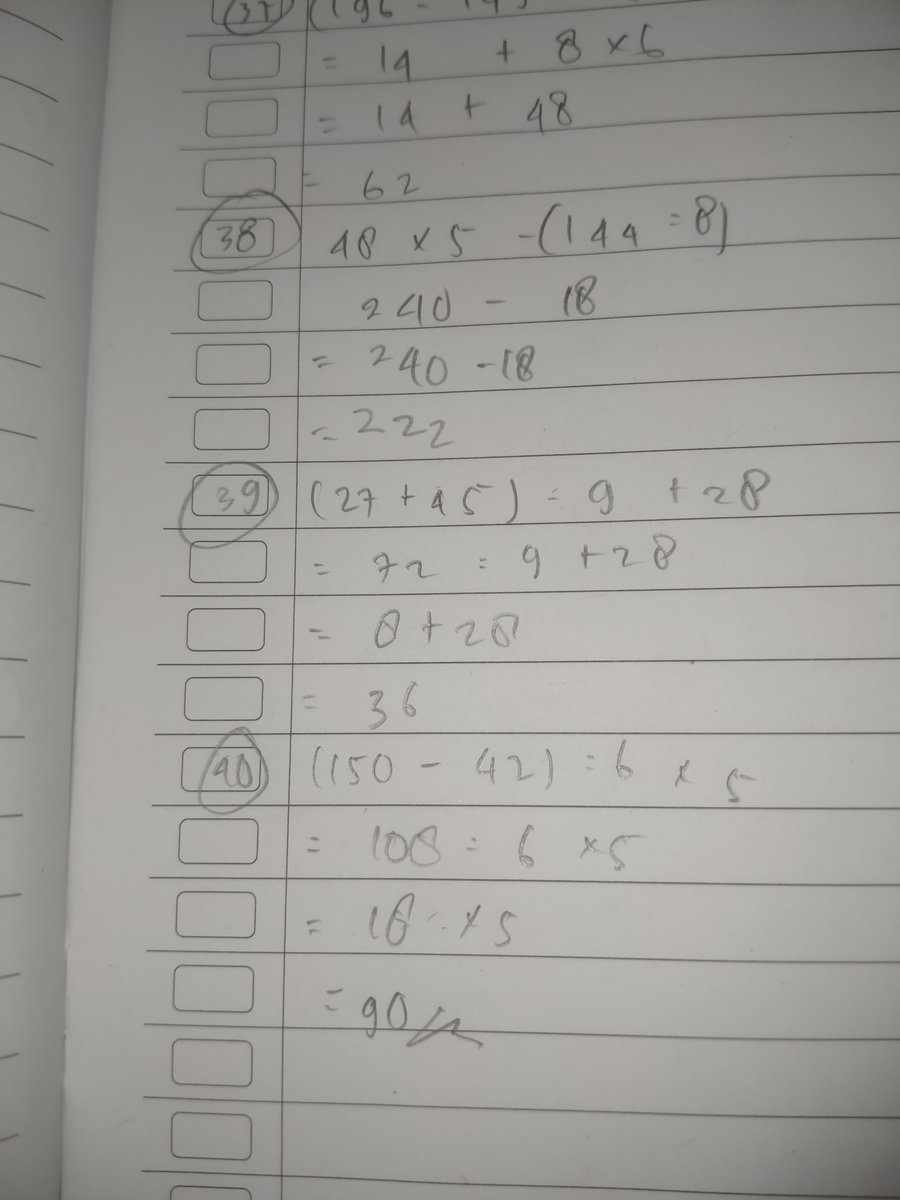 37 (196 - 14)
= 14 + 8 x 6
= 14 + 48
= 62
38 48 x 5 - (144 : 8)
240 - 18
= 240 - 18
= 222
39 (27 + 45) : 9 + 28
= 72 : 9 + 28
= 8 + 28
= 36
40 (150 - 42) : 6 x 5
= 108 : 6 x 5
= 18 x 5
= 90